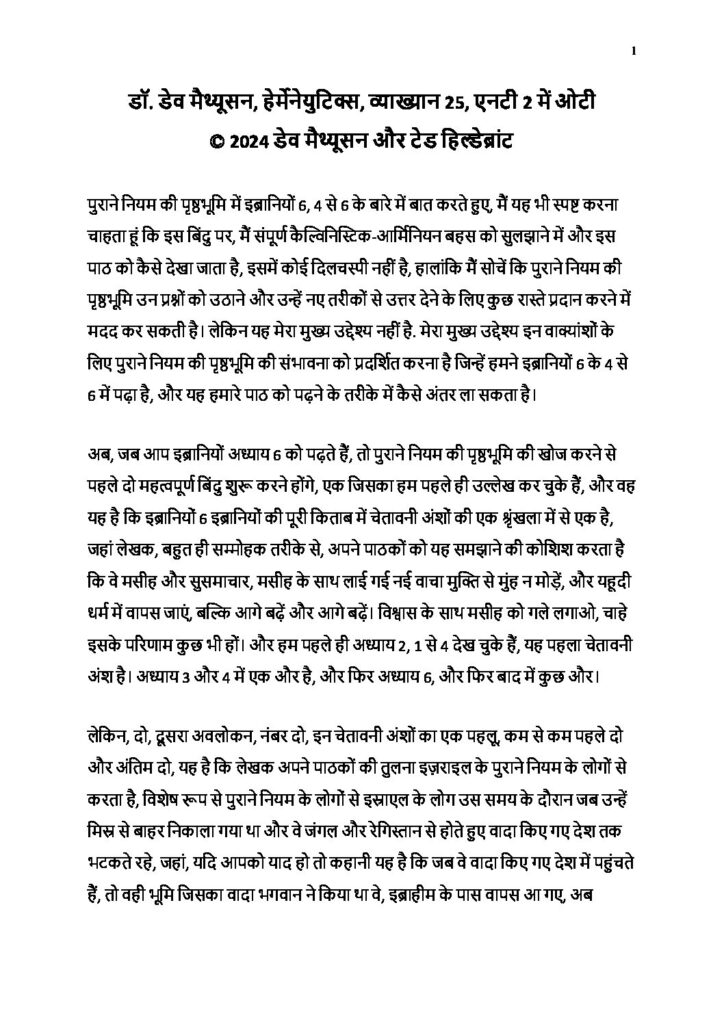 1
डॉ. डेव मैथ्यूसन, हेर्मेनेयुटिक्स, व्याख्यान 25, एनटी 2 में ओटी
© 2024 डेव मैथ्यूसन और टेड हिल्डेब्रांट
पुराने नियम की पृष्ठभूमि में इब्रानियों 6, 4 से 6 के बारे में बात करते हुए, मैं यह भी स्पष्ट करना
चाहता हूं कि इस बिंदु पर, मैं संपूर्ण कैल्विनिस्टिक-आर्मिनियन बहस को सुलझाने में और इस
पाठ को कैसे देखा जाता है, इसमें कोई दिलचस्पी नहीं है, हालांकि मैं सोचें कि पुराने नियम की
पृष्ठभूमि उन प्रश्नों को उठाने और उन्हें नए तरीकों से उत्तर देने के लिए कुछ रास्ते प्रदान करने में
मदद कर सकती है। लेकिन यह मेरा मुख्य उद्देश्य नहीं है. मेरा मुख्य उद्देश्य इन वाक्यांशों के
लिए पुराने नियम की पृष्ठभूमि की संभावना को प्रदर्शित करना है जिन्हें हमने इब्रानियों 6 के 4 से
6 में पढ़ा है, और यह हमारे पाठ को पढ़ने के तरीके में कैसे अंतर ला सकता है।
अब, जब आप इब्रानियों अध्याय 6 को पढ़ते हैं, तो पुराने नियम की पृष्ठभूमि की खोज करने से
पहले दो महत्वपूर्ण बिंदु शुरू करने होंगे, एक जिसका हम पहले ही उल्लेख कर चुके हैं, और वह
यह है कि इब्रानियों 6 इब्रानियों की पूरी किताब में चेतावनी अंशों की एक श्रृंखला में से एक है,
जहां लेखक, बहुत ही सम्मोहक तरीके से, अपने पाठकों को यह समझाने की कोशिश करता है
कि वे मसीह और सुसमाचार, मसीह के साथ लाई गई नई वाचा मुक्ति से मुंह न मोड़ें, और यहूदी
धर्म में वापस जाएं, बल्कि आगे बढ़ें और आगे बढ़ें। विश्वास के साथ मसीह को गले लगाओ, चाहे
इसके परिणाम कुछ भी हों। और हम पहले ही अध्याय 2, 1 से 4 देख चुके हैं, यह पहला चेतावनी
अंश है। अध्याय 3 और 4 में एक और है, और फिर अध्याय 6, और फिर बाद में कुछ और।
लेकिन, दो, दूसरा अवलोकन, नंबर दो, इन चेतावनी अंशों का एक पहलू, कम से कम पहले दो
और अंतिम दो, यह है कि लेखक अपने पाठकों की तुलना इज़राइल के पुराने नियम के लोगों से
करता है, विशेष रूप से पुराने नियम के लोगों से इस्राएल के लोग उस समय के दौरान जब उन्हें
मिस्र से बाहर निकाला गया था और वे जंगल और रेगिस्तान से होते हुए वादा किए गए देश तक
भटकते रहे, जहां, यदि आपको याद हो तो कहानी यह है कि जब वे वादा किए गए देश में पहुंचते
हैं, तो वही भूमि जिसका वादा भगवान ने किया था वे, इब्राहीम के पास वापस आ गए, अब